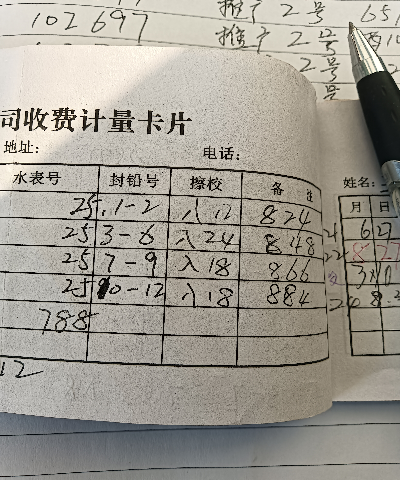 102697
推广 2号 651
推广 2号
2号
号
司收费计量卡片
地址: 电话:
水表号 封铅号 擦校 备注
25.1-2 入12 824
25 3-6 入24 848
25 7-9 入18 866
25 10-12 入18 884
788
12
姓名:
月 日
6 27
8 27